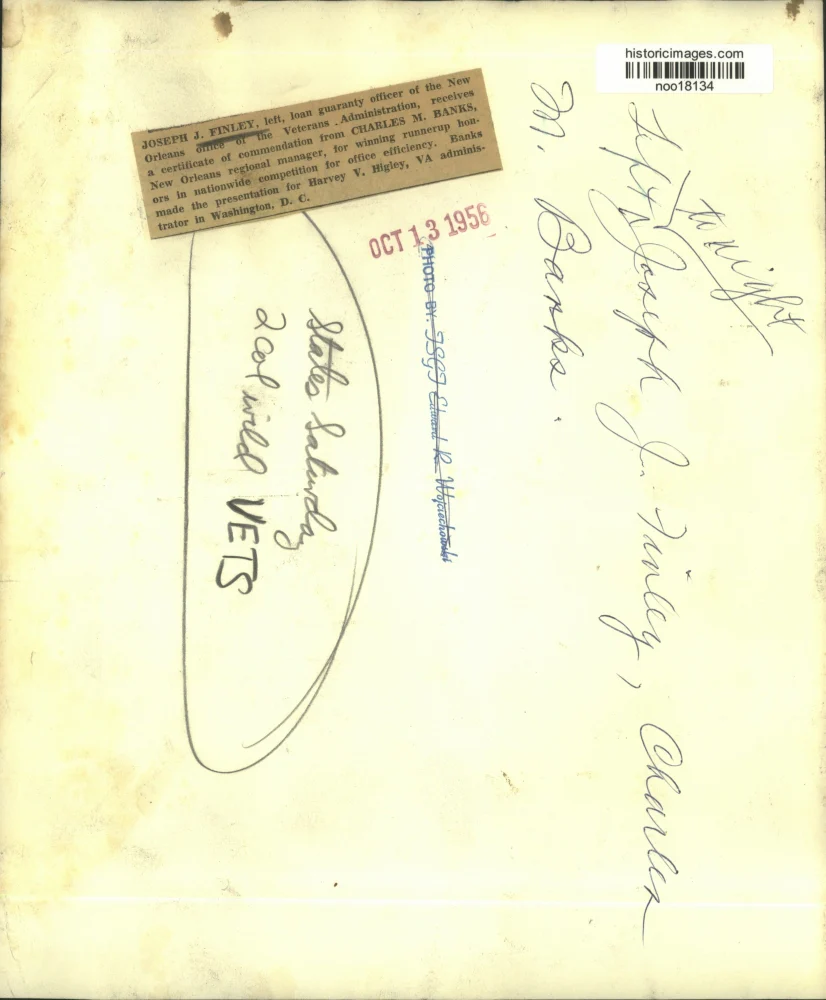 historicimages.com
noo18134
JOSEPH J. FINLEY, left, loan guaranty officer of the New
Orleans office of the Veterans Administration, receives
a certificate of commendation from CHARLES M. BANKS,
New Orleans regional manager, for winning runnerup hon-
ors in nationwide competition for office efficiency. Banks
made the presentation for Harvey V. Higley, VA adminis-
trator in Washington, D. C.
OCT 13 1956
to night
Joseph J. Finley, Charles
M. Banks.
PHOTO BY: TSGT Edward R. Wojciechowski
States Saturday
2 col wild VETS